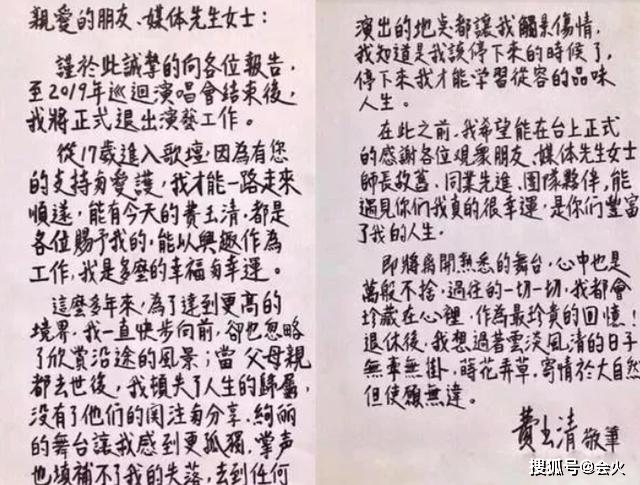 親愛的朋友、媒体先生女士：
謹於此誠摯的向各位報告，
至2019年巡迴演唱會結束後，
我將正式退出演藝工作。
從17歲進入歌壇，因為有您
的支持與愛護，我才能一路走來
順遂，能有今天的費玉清，都是
各位賜予我的，能以興趣作為
工作，我是多麼的幸福與幸運。
這麼多年來，為了達到更高的
境界，我一直快步向前，卻也忽略
了欣賞沿途的風景；當父母親
都去世後，我頓失了人生的歸屬，
沒有了他們的関注与分享，絢麗
的舞台讓我感到更孤獨，掌声
也填補不了我的失落，去到任何
演出的地点都讓我觸景傷情，
我知道是我該停下來的時候了，
停下來我才能学習從容的品味
人生。
在此之前，我希望能在台上正式
的感謝各位观衆朋友、媒体先生女士
師長故舊、同業先進、团隊夥伴，能
遇見你們我真的很幸運，是你們豐富
了我的人生。
即將离開熟悉的舞台，心中也是
萬般不捨，過往的一切一切，我都會
珍藏在心裡，作為最珍貴的回憶！
退休後，我想過著雲淡風清的日子
無牽無掛，蒔花弄草，寄情於大自然
但使願無違。
費玉清 敬筆
搜狐号@会火